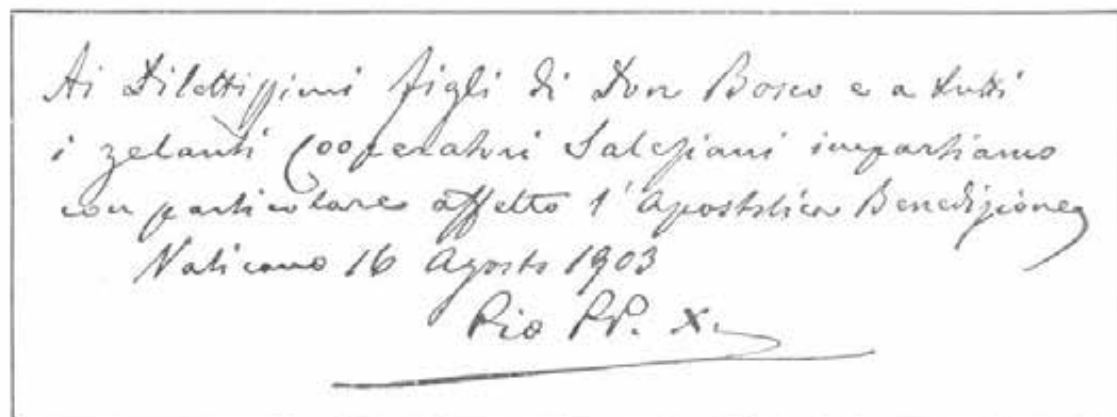 Ai Dilettissimi figli di Don Bosco e a tutti
i zelanti Cooperatori Salesiani impartiamo
con particolare affetto l'Apostolica Benedizione
Vaticano 16 Agosto 1903
Pio PP. X.